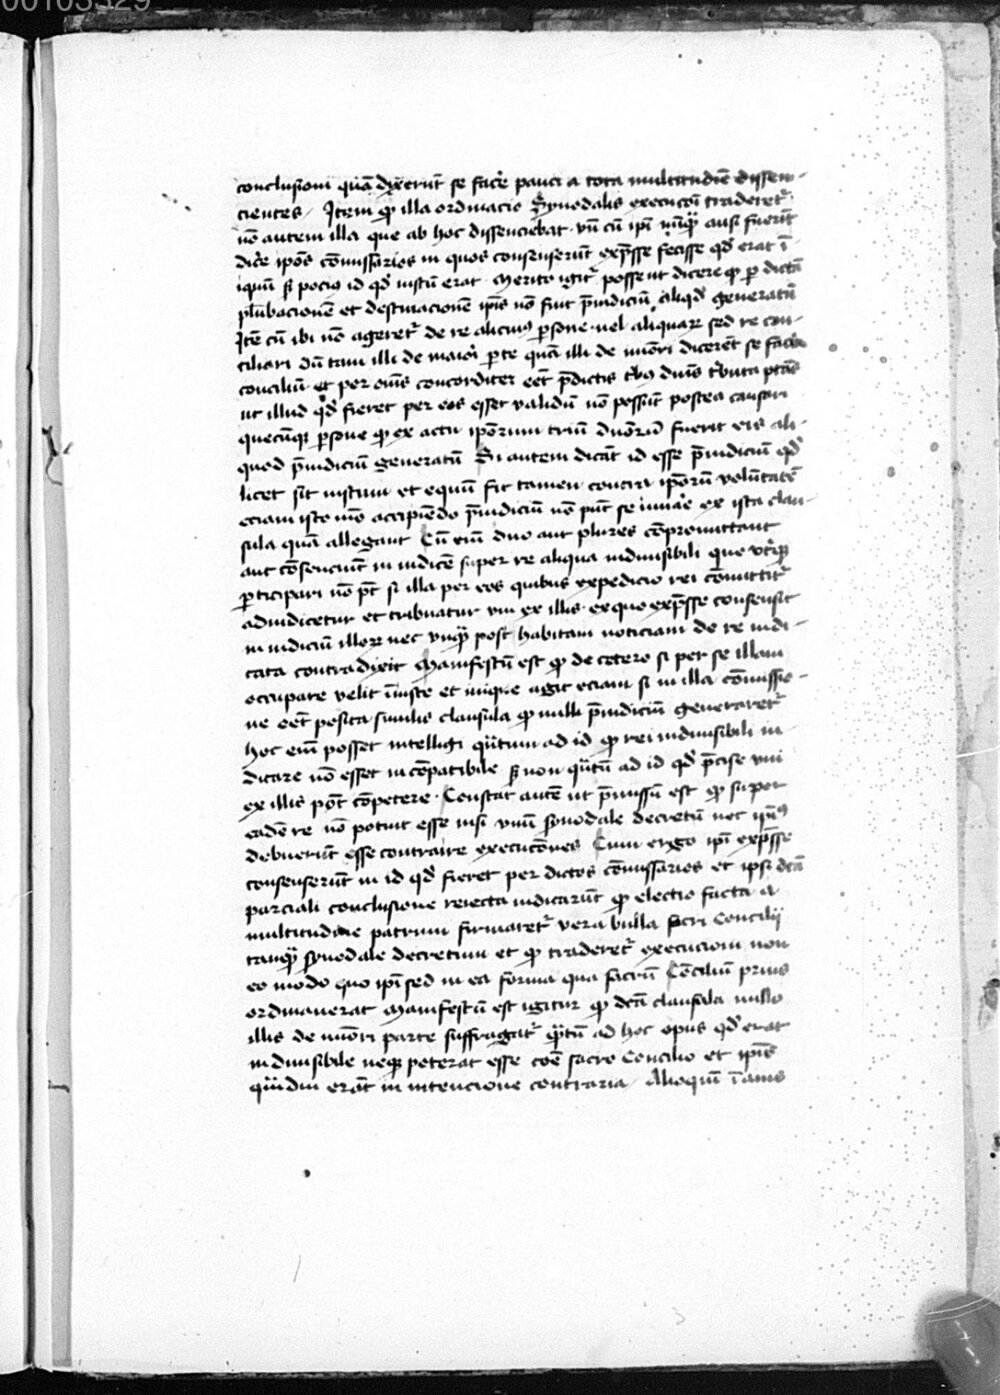 00103329
conclusioni quā dixerūt se facē pauci a tota multitudīe dissen-
cientes. Itē ꝙ illa ordinacio Synodalis execucōi traderetʳ
nō autem illa que ab hoc dissenciebat. vn̄ cū ip̄i nūꝙ̄ ausi fuerīt
dicē ip̄os cōmissarios in quos consenserūt exp̄sse fecisse qd̓ erat ī
iquū sꝫ pocius id qd̓ iustū erat. Merito igitʳ possent dicere ꝙ ꝑ dictā
plūbacionē et destinacionē ip̄is nō fuit p̄iudiciū aliqd̓ generatū
Itē cū ibi nō ageretʳ de re alicuiꝰ ꝑsone vel aliquarꝫ sed re con-
ciliari dū tam illi de maiori ꝑte quā illi de mīori dicerēt se facē
conciliū et per om̄s concorditer eēt p̄dictis tribꝫ dn̄is t̓buta ptās
ut illud qd̓ fieret per eos esset validū nō possūt postea causari
quecūqꝫ ꝑsone ꝙ ex actu ip̄orum triū dn̄orū fuerit eis ali-
quod p̄iudiciū generatū Si autem dicāt id esse p̄iudiciū qd̓
licet sit iustum et equū fit tamen contra ip̄orū volūtatē
eciam isto mō accipiēdo p̄iudiciū nō pn̄t se iuuāe ex ista clau-
sula quā allegant Cū em̄ duo aut plures cōpromittant
aut cōsenciūt in iudicē super re aliqua indiuisibili que vtriqꝫ
ꝑticipari nō pōt si illa per eos quibus expedicio rei cōmittitʳ
adiudicetur et tribuatur vni ex illis. ex quo exp̄sse consensit
in iudiciū illorꝫ nec vnꝙ̄ post habitam noticiam de re iudi-
cata contradixit Manifestū est ꝙ de cetero si per se illam
occupare velit īiuste et inique agit eciam si in illa cōmissio-
ne eēt posita similis clausula ꝙ nulli p̄iudiciū generaretʳ
hoc em̄ posset intelligi qn̄tum ad id ꝙ rei indiuisibili iu
dicare nō esset incōpatibile sꝫ non qn̄tū ad id qd̓ p̄cise vni
ex illis pōt cōpetere. Constat autē ut p̄missū est ꝙ super
eadē re nō potuit esse nisi vnū synodale decretū nec ip̄iꝰ
debuerūt esse contrarie execucōnes Cum ergo ip̄i exp̄sse
consenserūt in id qd̓ fieret per dictos cōmissarios et ipsi dc̄ā
parciali conclusione reiecta iudicarūt ꝙ electio facta a
multitudine patrum firmaretʳ vera bulla sacri Concilij
tanꝙ̄ synodale decretum et ꝙ traderetʳ execucioni non
eo modo quo ip̄i sed in ea forma qua sacrū Conciliū prius
ordinauerat Manifestū est igitur ꝙ dc̄ā clausula nullo
illis de mīori parte suffragatʳ qn̄tū ad hoc opus qd̓ erat
indiuisibile neqꝫ poterat esse cōe sacro Concilio et ip̄is
qn̄diu erāt in intencione contraria Alioquī īanis